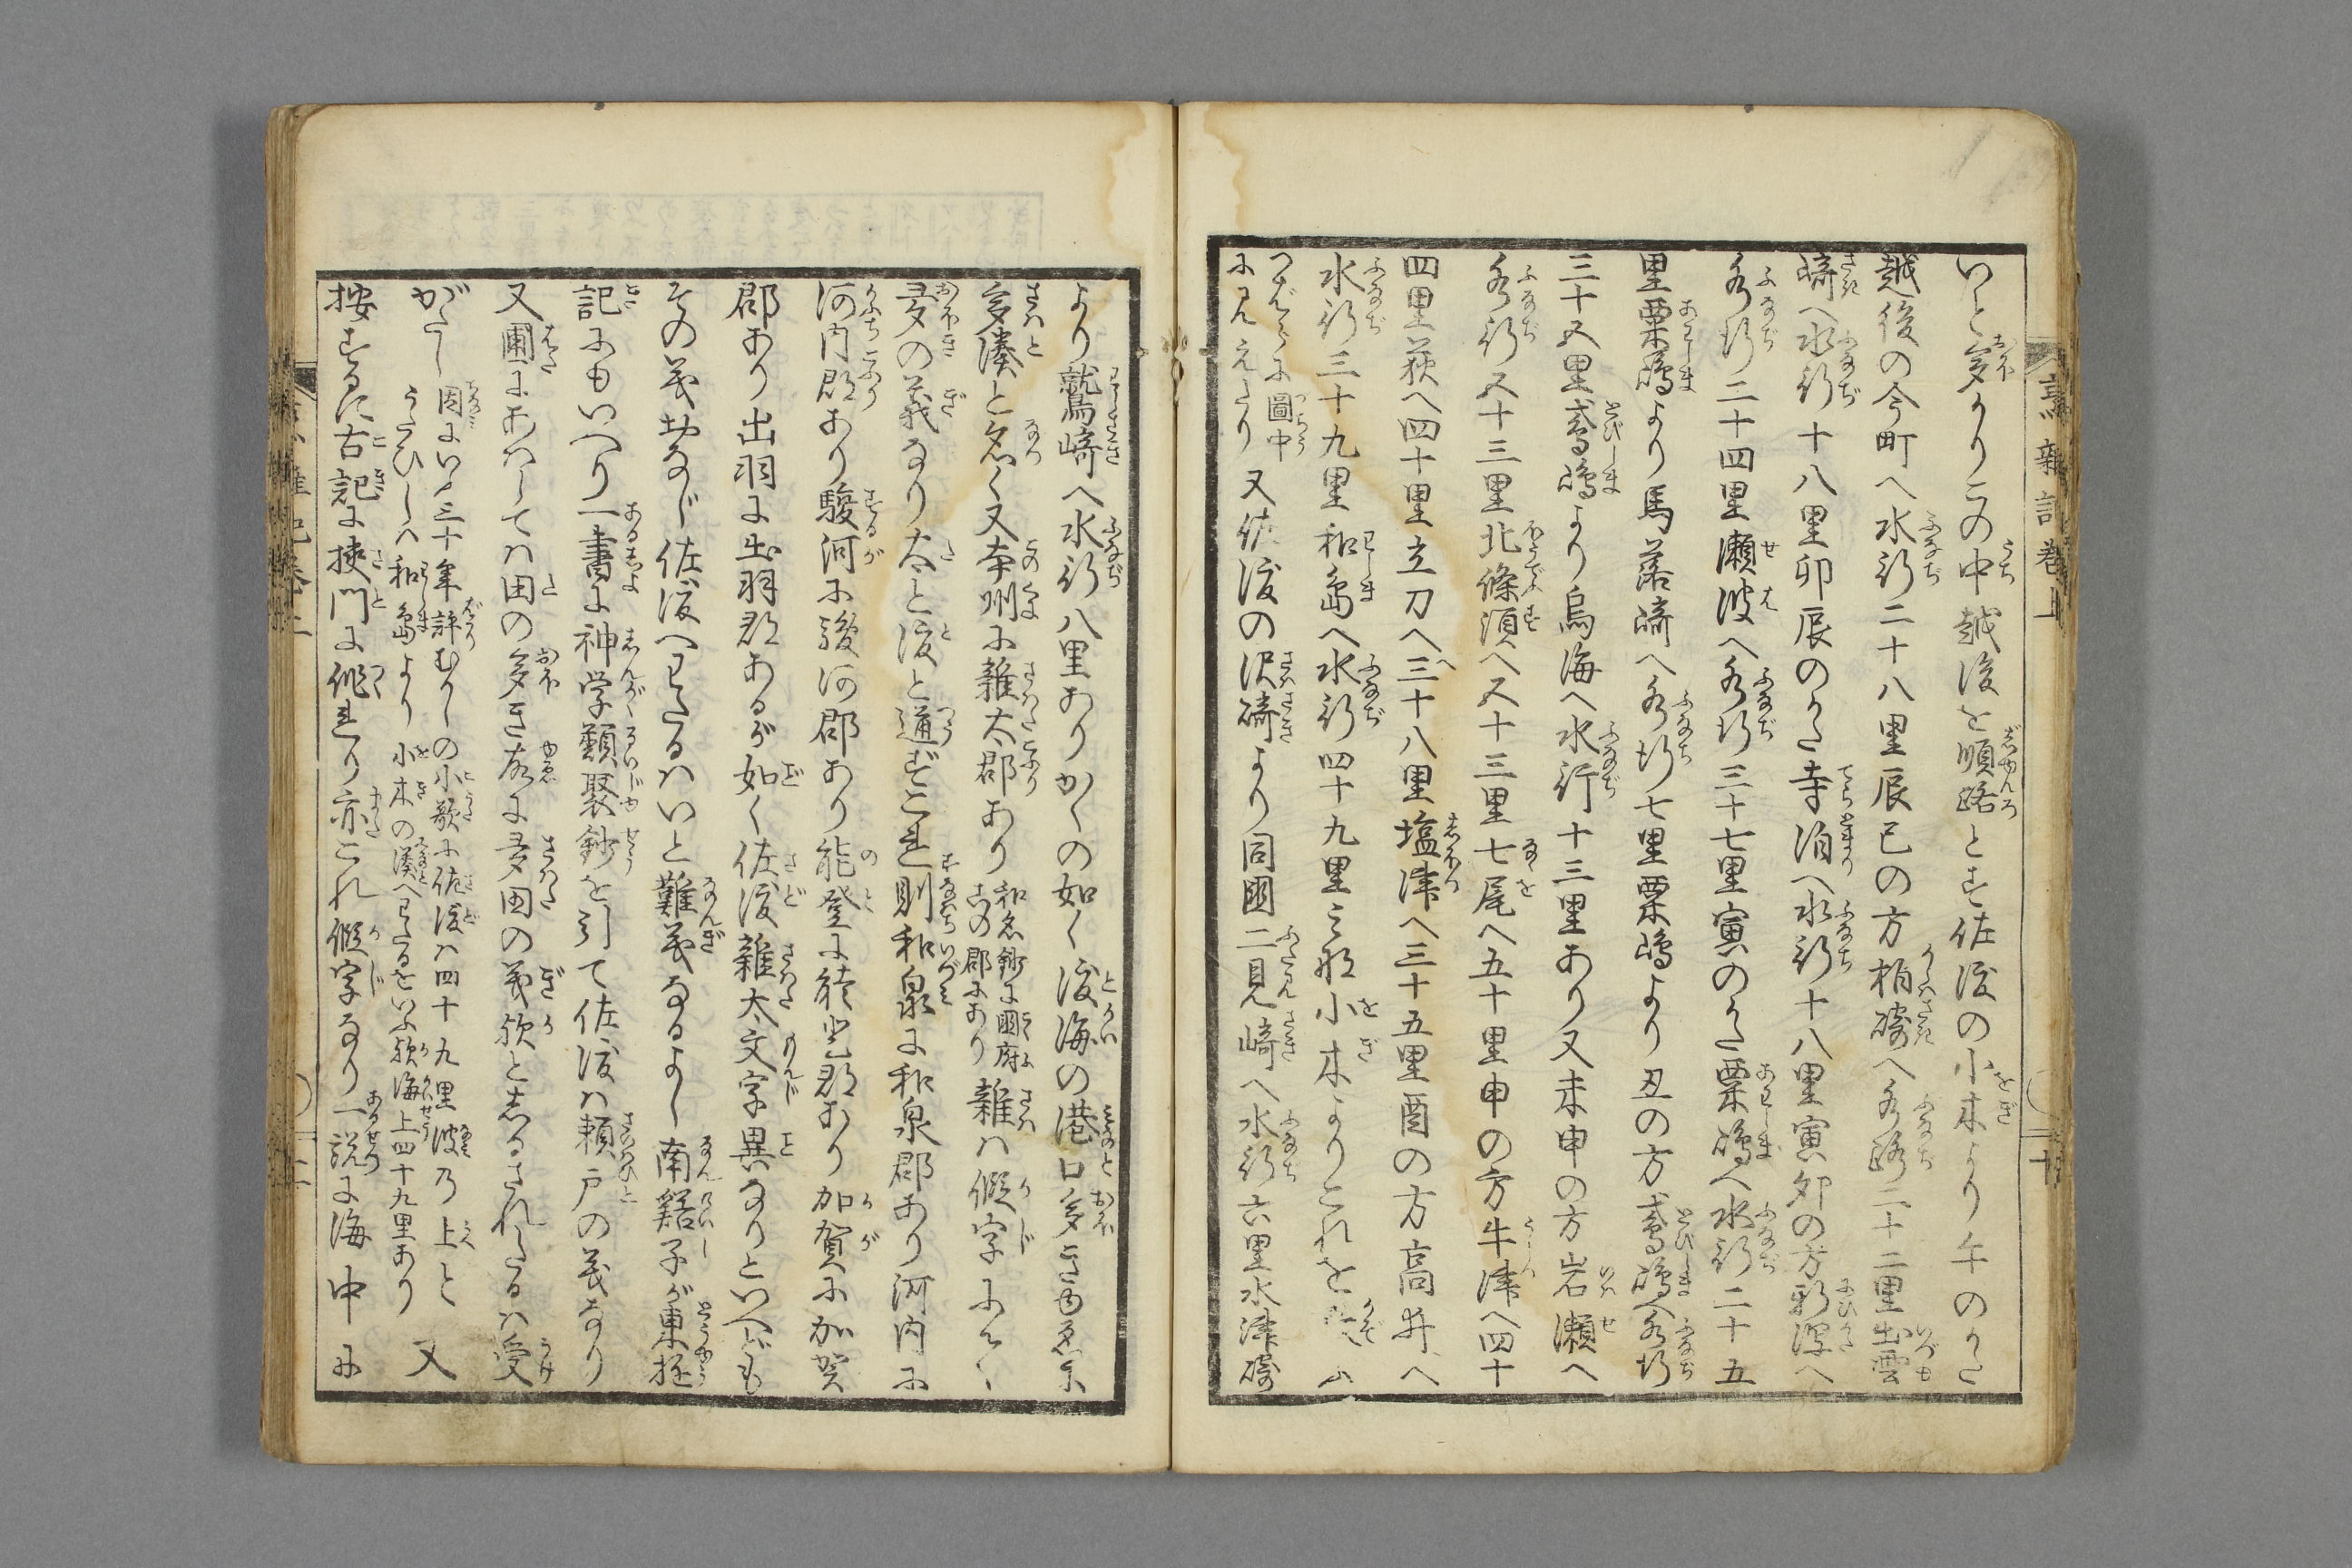 いと多かりこの中越後を順路とす佐渡の小木より午のかた
越後の今町へ水行二十八里辰巳の方柏崎へ水路二十二里出雲
崎へ水行十八里卯辰のかた寺泊へ水行十八里寅卯の方新潟へ
水行二十四里瀬波へ水行三十七里寅のかた粟嶋へ水行二十五
里粟嶋より馬落崎へ水行七里粟嶋より丑の方鳶嶋へ水行
三十五里鳶嶋より烏海へ水行十三里あり又未申の方岩瀬へ
水行五十三里北條須へ五十三里七尾へ五十里申の方牛津へ四十
四里荻へ四十里立刀へ三十八里塩津へ三十五里酉の方高井へ
水行三十九里和島へ水行四十九里その船小木よりこれをかぞふ
つまびらかに圖中
に見えたり
又佐渡の沢崎より同国二見崎へ水行六里水津崎
より鷲崎へ水行八里ありかくの如く渡海の港口多きゆゑに
多湊と名く又本州に雑太郡あり
和名鈔に國府
この郡にあり
雑は假字にて
多の義なり太と渡と通ずこれ則和泉に和泉郡あり河内に
河内郡あり駿河に駿河郡あり能登に能登郡あり加賀に加賀
郡あり出羽に出羽郡あるが如く佐渡雑太文字異なりといへども
その義おなじ佐渡へわたるはいと難義なるよし南谿子が東遊
記にもいへり一書に神学類聚鈔を引て佐渡は頼戸の義なり
又圃にあはしては田の多き故に多田の義欤としるされたるは受
がたし
因にいふ三十年許むかしの小歌に佐渡は四十九里波乃上と
うたひしは和島より小木の湊へわたるをいふ欤海上四十九里あり
又
按ずるに古記に挾門に作れり亦これ假字なり一説に海中に